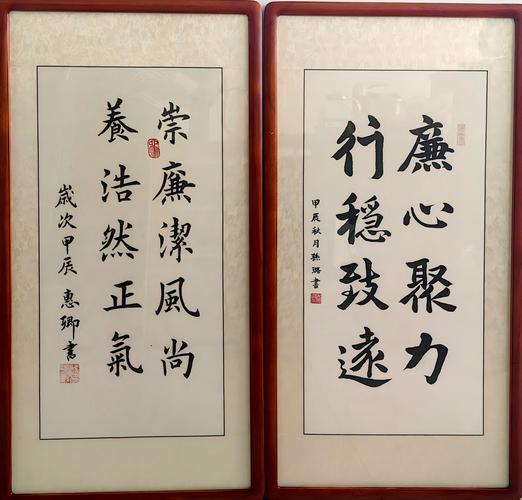 廉心聚力
行穩致遠
甲辰秋月孫璐書
崇廉潔風尚
養浩然正氣
歲次甲辰惠卿書